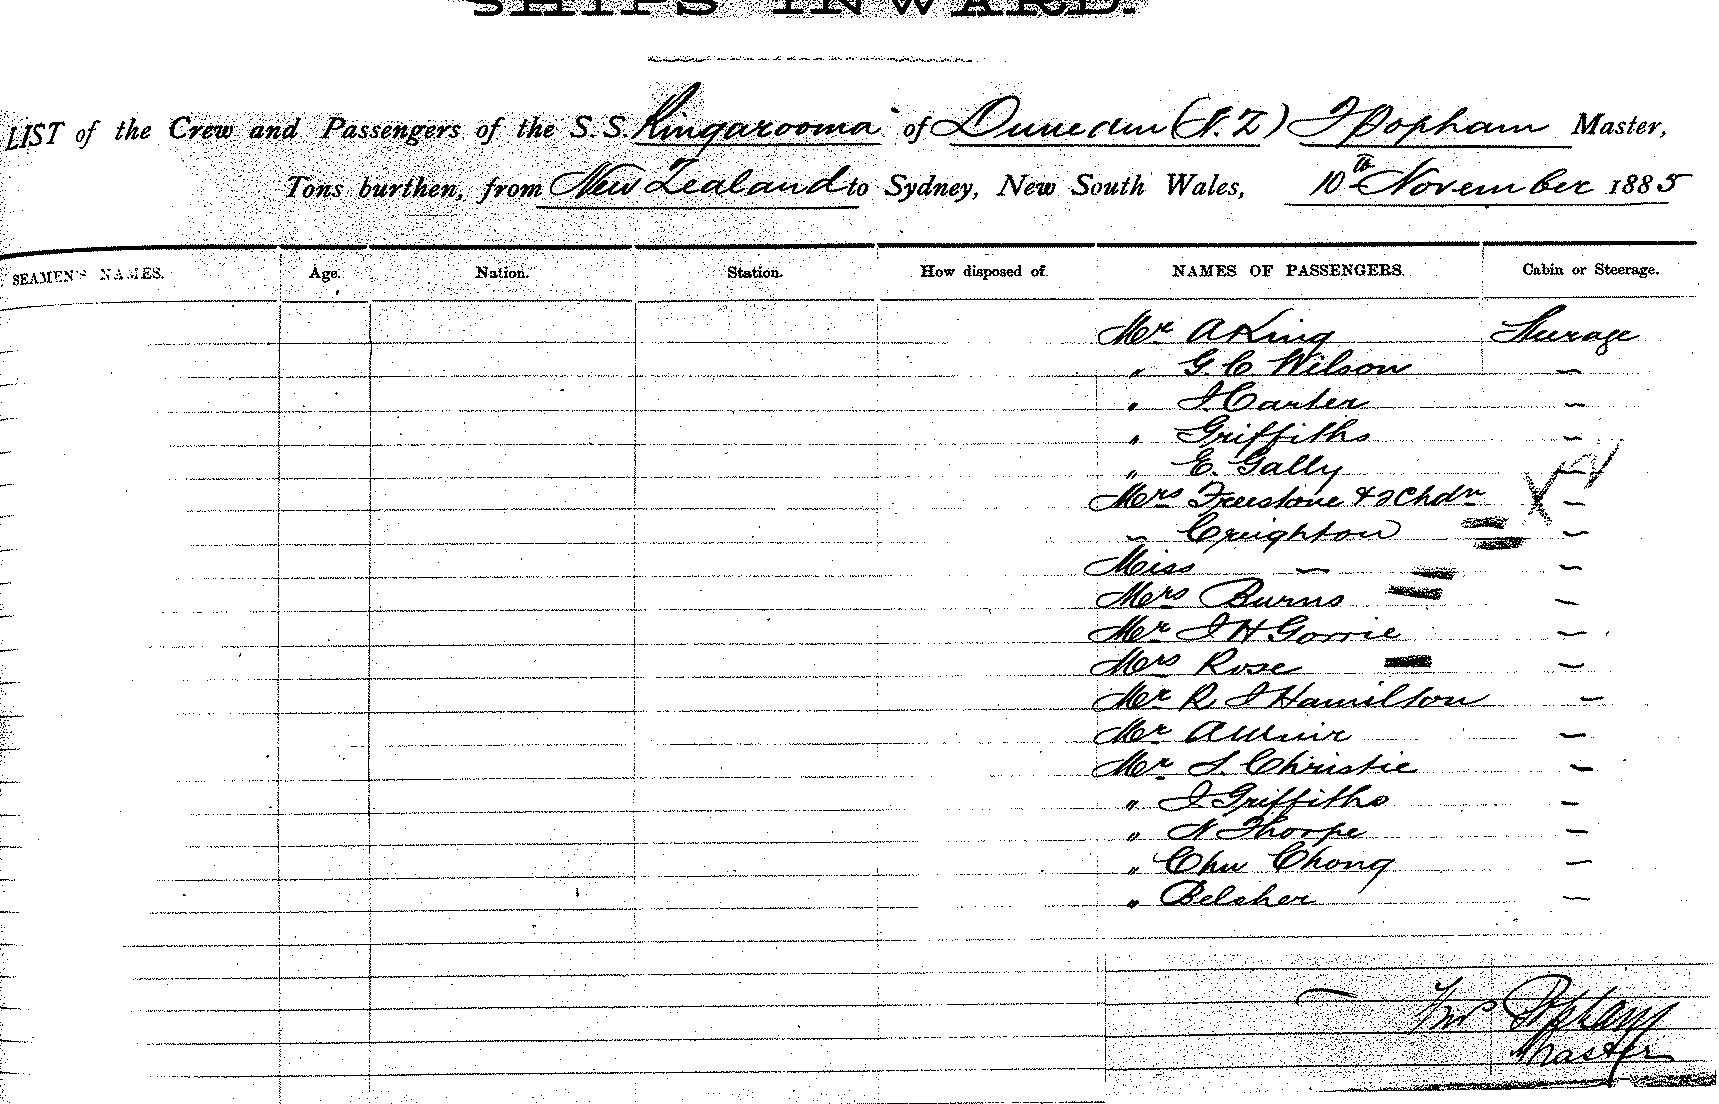 SHIPS INWARD.
LIST of the Crew and Passengers of the S.S. Ringarooma of Dunedin (N.Z) J Popham Master,
Tons burthen, from New Zealand to Sydney, New South Wales, 10th November 1885
SEAMEN'S NAMES. Age. Nation. Station. How disposed of. NAMES OF PASSENGERS. Cabin or Steerage.
Mr A King Steerage
" G. C Wilson "
" J Carter "
" Griffiths "
" E. Gally "
Mrs Freestone & 2 Chdn "
" Creighton "
Miss " "
Mrs Burns "
Mr J H Gorrie "
Mrs Rose "
Mr R J Hamilton "
Mr A Muir "
Mr S. Christie "
" J. Griffiths "
" N Thorpe "
" Chu Chong "
" Belcher "
Popham
Master